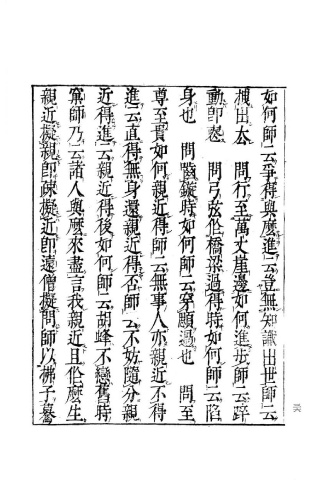 如何師云爭得與麼進云豈無知識出世師云
損出厺 問行至萬丈崖邊如何進步師云踔
動卽悪 問弓弦作橋梁過得時如何師云陷
身也 問齧鏃時如何師云穿顋過也 問至
尊至貴如何親近得師云無事人亦親近不得
進云直得無身還親近得否師云不妨隨分親
近得進云親近得後如何師云胡蜂不戀舊時
窠師乃云諸人與麼來盡言我親近且作麼生
親近擬親卽疎擬近卽遠僧擬問師以佛子驀